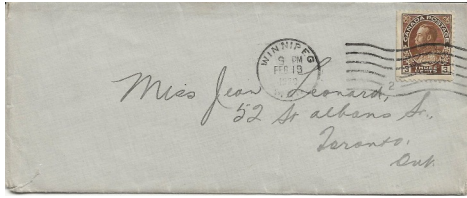 WINNIPEG
9 PM
FEB 19
CANADA POSTAGE
3 3
2
Miss Jean Leonard,
52 St Albans St.,
Toronto,
Ont.